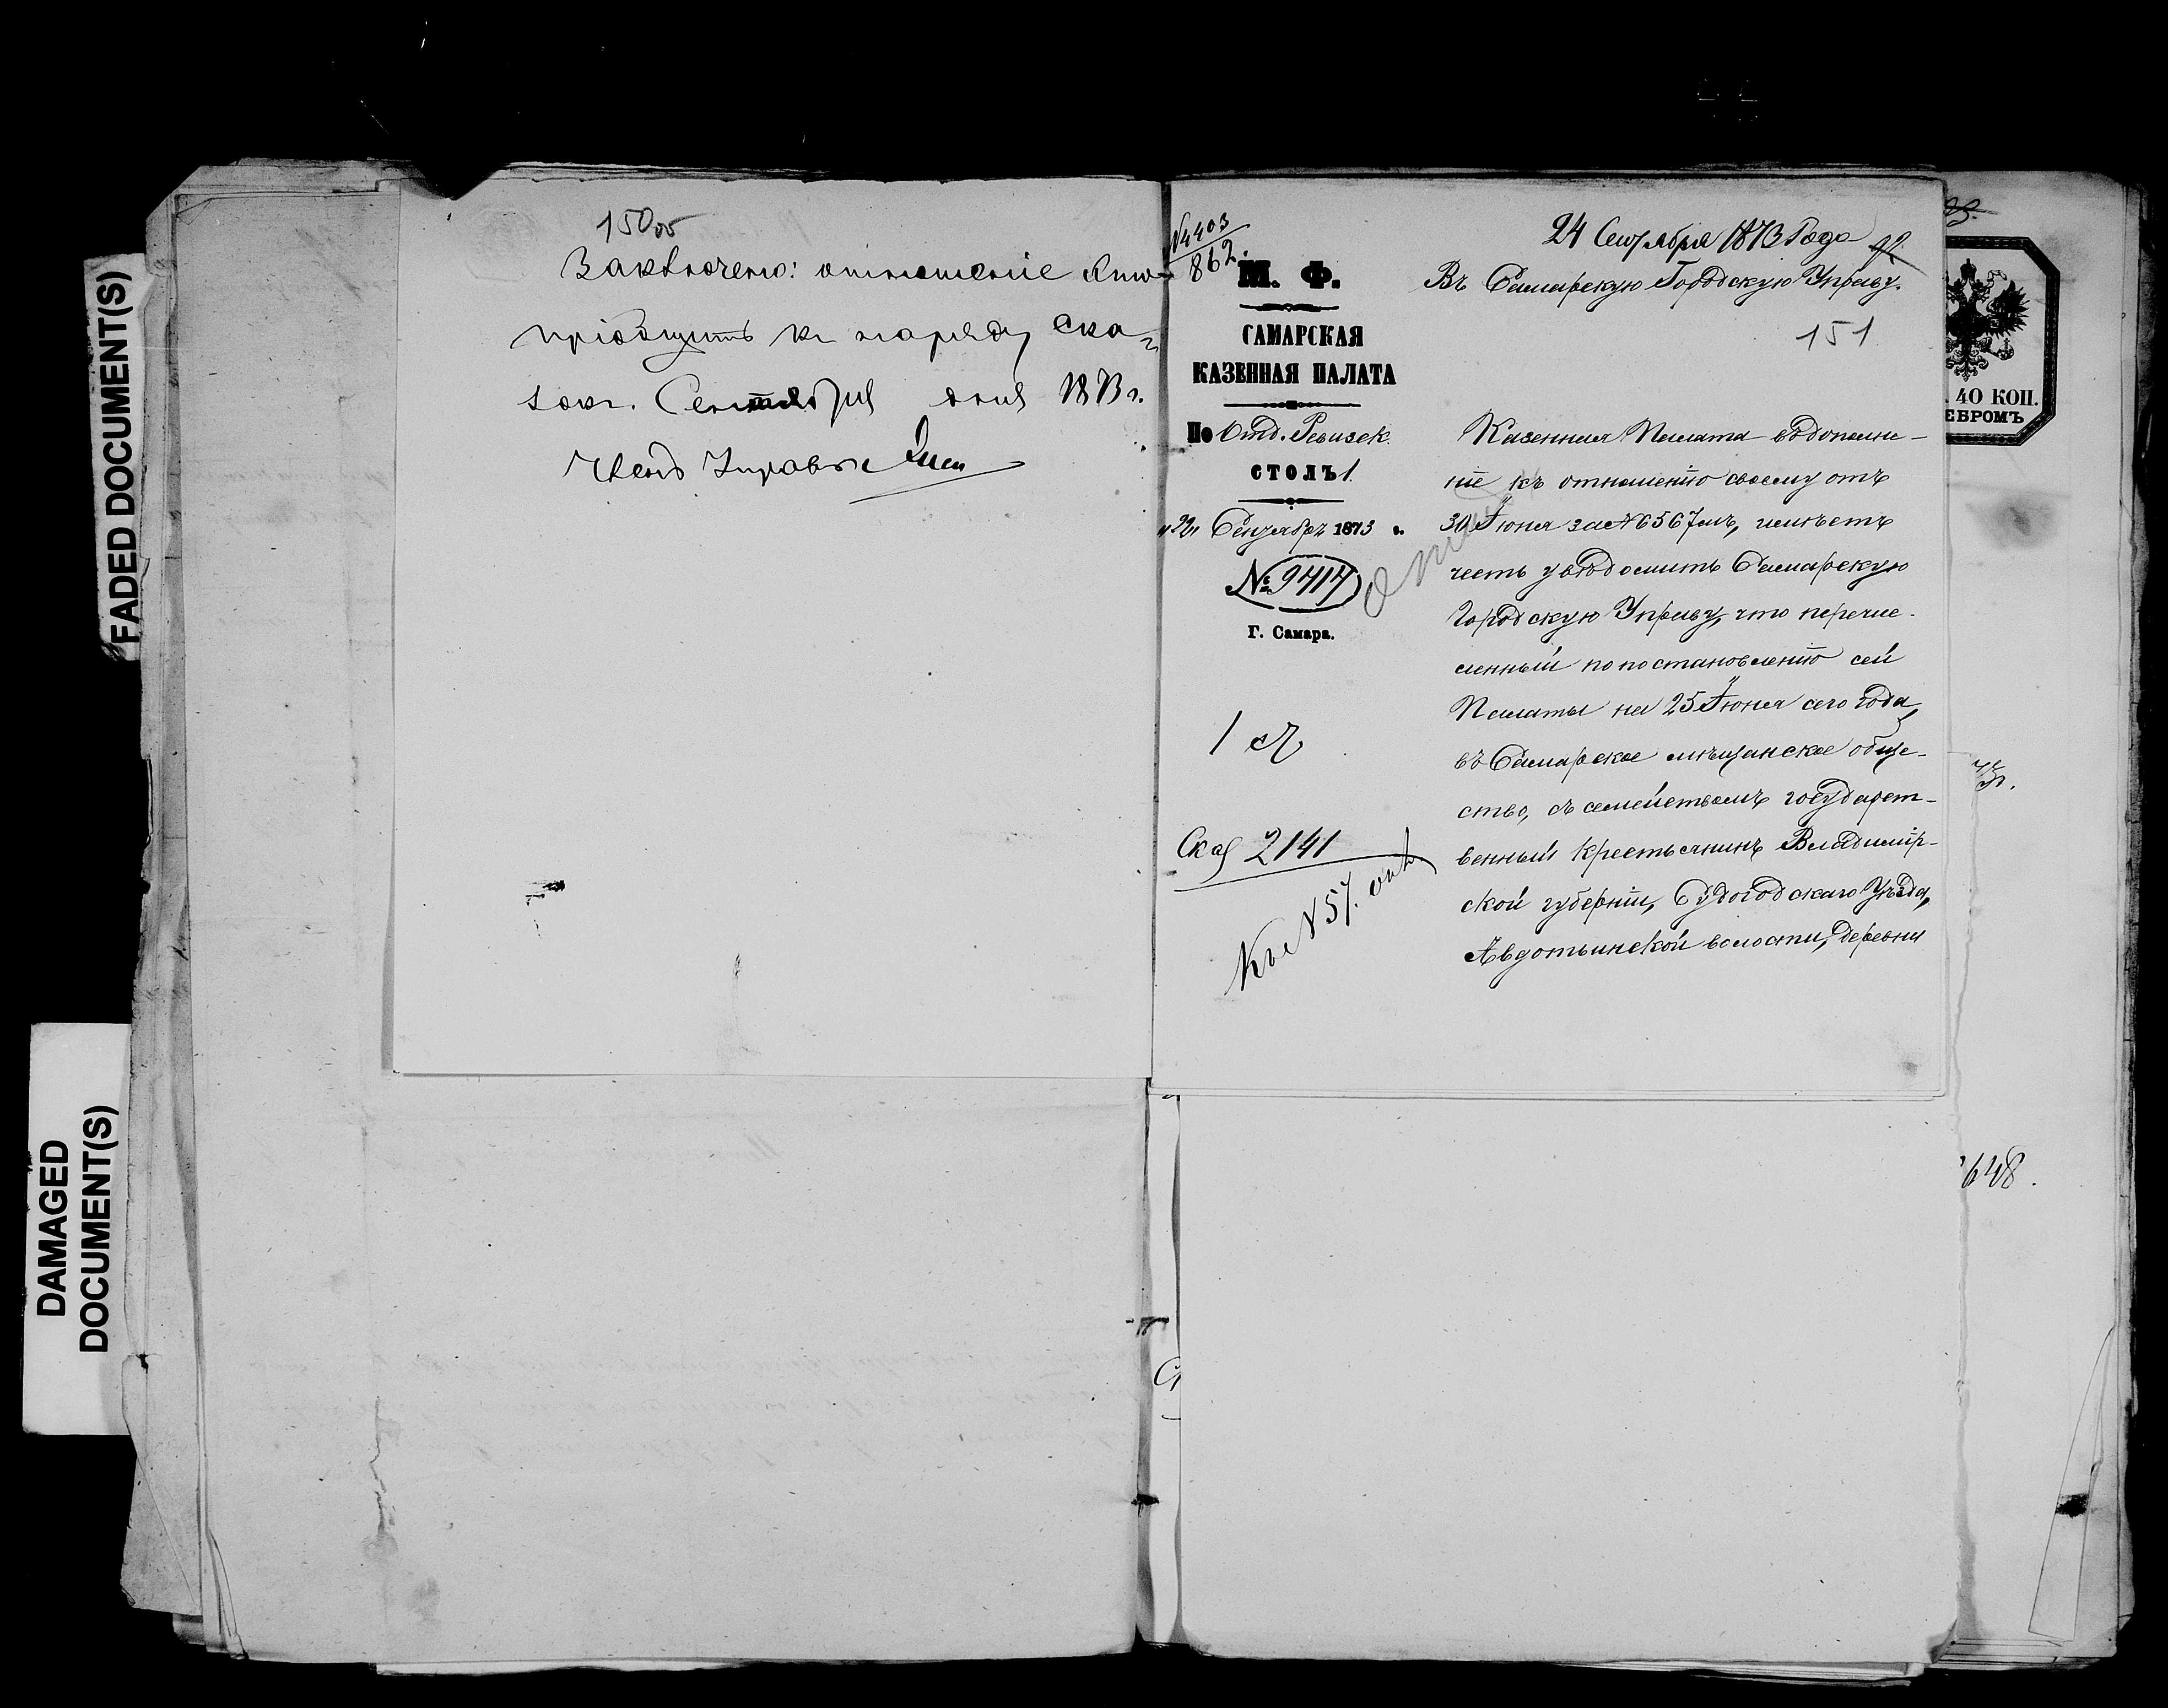 FADED DOCUMENT(S)
DAMAGED
DOCUMENT(S)
150об
Заключено: отношеніе это
пріобщить къ наряду ска-
зок. Сентября дня 1873 г.
Членъ Управы
№4403
862.
М. Ф.
САМАРСКАЯ
КАЗЕННАЯ ПАЛАТА
По Отд. Ревизск.
СТОЛЪ 1.
"22" Сентября 1873 г.
№ 9414
Г. Самара.
1 ст
Сказ 2141
24 Сентября 1873 Года
Въ Самарскую Городскую Управу.
151
Казенная Палата въ дополне-
ніе къ отношенію своему отъ
30 Іюня за № 6567мъ, имѣетъ
честь увѣдомить Самарскую
Городскую Управу, что перечис-
ленный по постановленію сей
Палаты на 25 Іюня сего года,
въ Самарское мѣщанское обще-
ство, съ семействомъ государст-
венный крестьянинъ Владимір-
ской губерніи, Судогодскаго Уѣзда,
Авдотьинской волости, деревни
40 КОП.
ЕБРОМЪ
648.